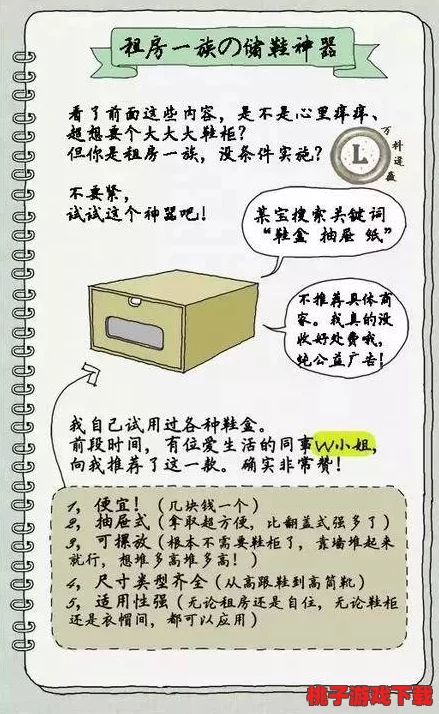 租房一族の储鞋神器
看了前面这些内容，是不是心里痒痒、
超想要个大大大鞋柜？
但你是租房一族，没条件实施？
万科逯薇
L
不要紧，
试试这个神器吧！
某宝搜索关键词
“鞋盒 抽屉 纸”
不推荐具体商
家。我真的没
收好处费哦，
纯公益广告！
我自己试用过各种鞋盒。
前段时间，有位爱生活的同事W小姐，
向我推荐了这一款。确实非常赞！
1，便宜！（几块钱一个）
2，抽屉式（拿取超方便，比翻盖式强多了）
3，可摞放（根本不需要鞋柜了，靠墙堆起来
就行，想堆多高堆多高！）
4，尺寸类型齐全（从高跟鞋到高筒靴）
5，适用性强（无论租房还是自住，无论鞋柜
还是衣帽间，都可以应用）
桃子游戏下载